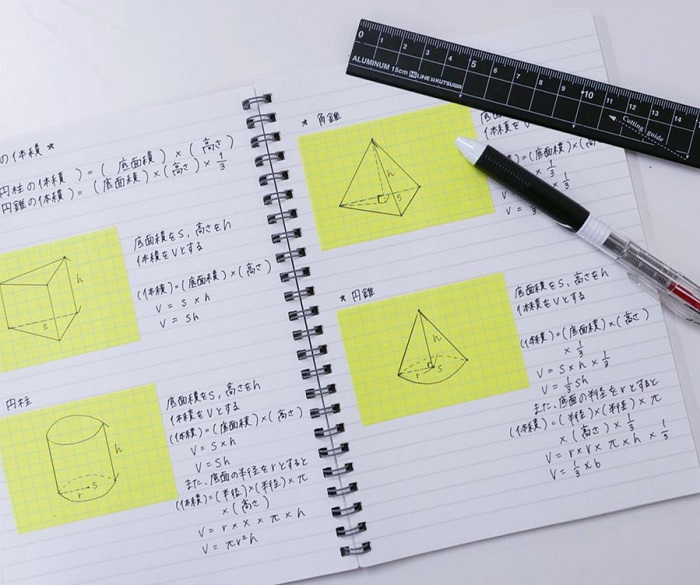 の体積 ★
円柱の体積 ) = ( 底面積 ) × ( 高さ )
円錐の体積 ) = ( 底面積 ) × ( 高さ ) × 1/3
h
s
底面積をS, 高さをh
体積をVとする
(体積) = (底面積) × (高さ)
V = S × h
V = Sh
円柱
h
r
s
底面積をS, 高さをh
体積をVとする
(体積) = (底面積) × (高さ)
V = S × h
V = Sh
また、底面の半径をrとすると
(体積) = (半径) × (半径) × π
× (高さ)
V = r × x × π × h
V = πr²h
★ 角錐
h
s
体積をV
= (底面積) × (高
× 1/3
× 1/3
V =
★ 円錐
h
r
s
底面積をS, 高さをh
体積をVとする
(体積) = (底面積) × (高さ)
× 1/3
V = S × h × 1/3
V = 1/3 Sh
また、底面の半径をrとすると
(体積) = (半径) × (半径) × π
× (高さ) × 1/3
V = r × r × π × h × 1/3
V = 1/3 × b
0 1 2 3 4 5 6 7 8 9 10 11 12 13 14
ALUMINUM 15cm LINE KUTSUWA
Cutting guide